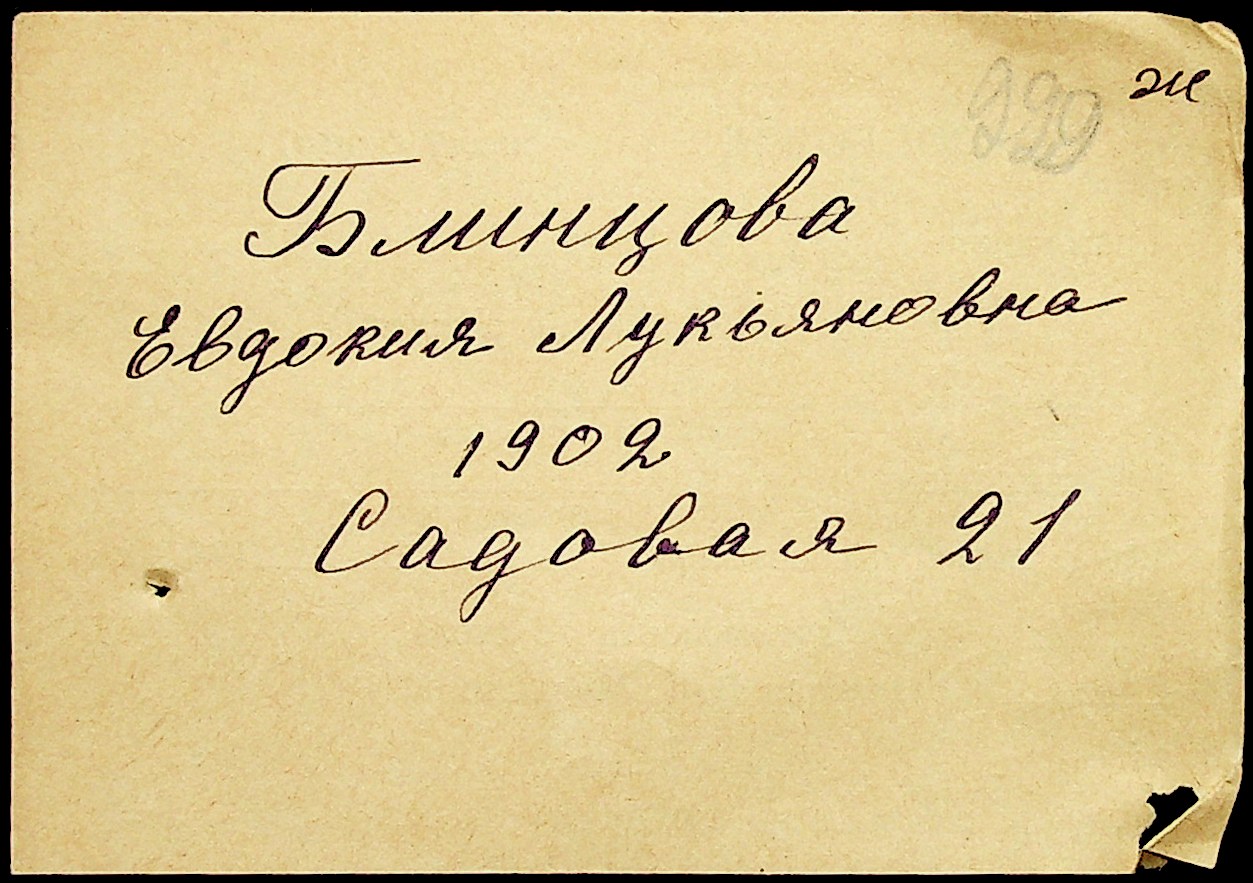 ж
Блинцова
Евдокия Лукьяновна
1902
Садовая 21